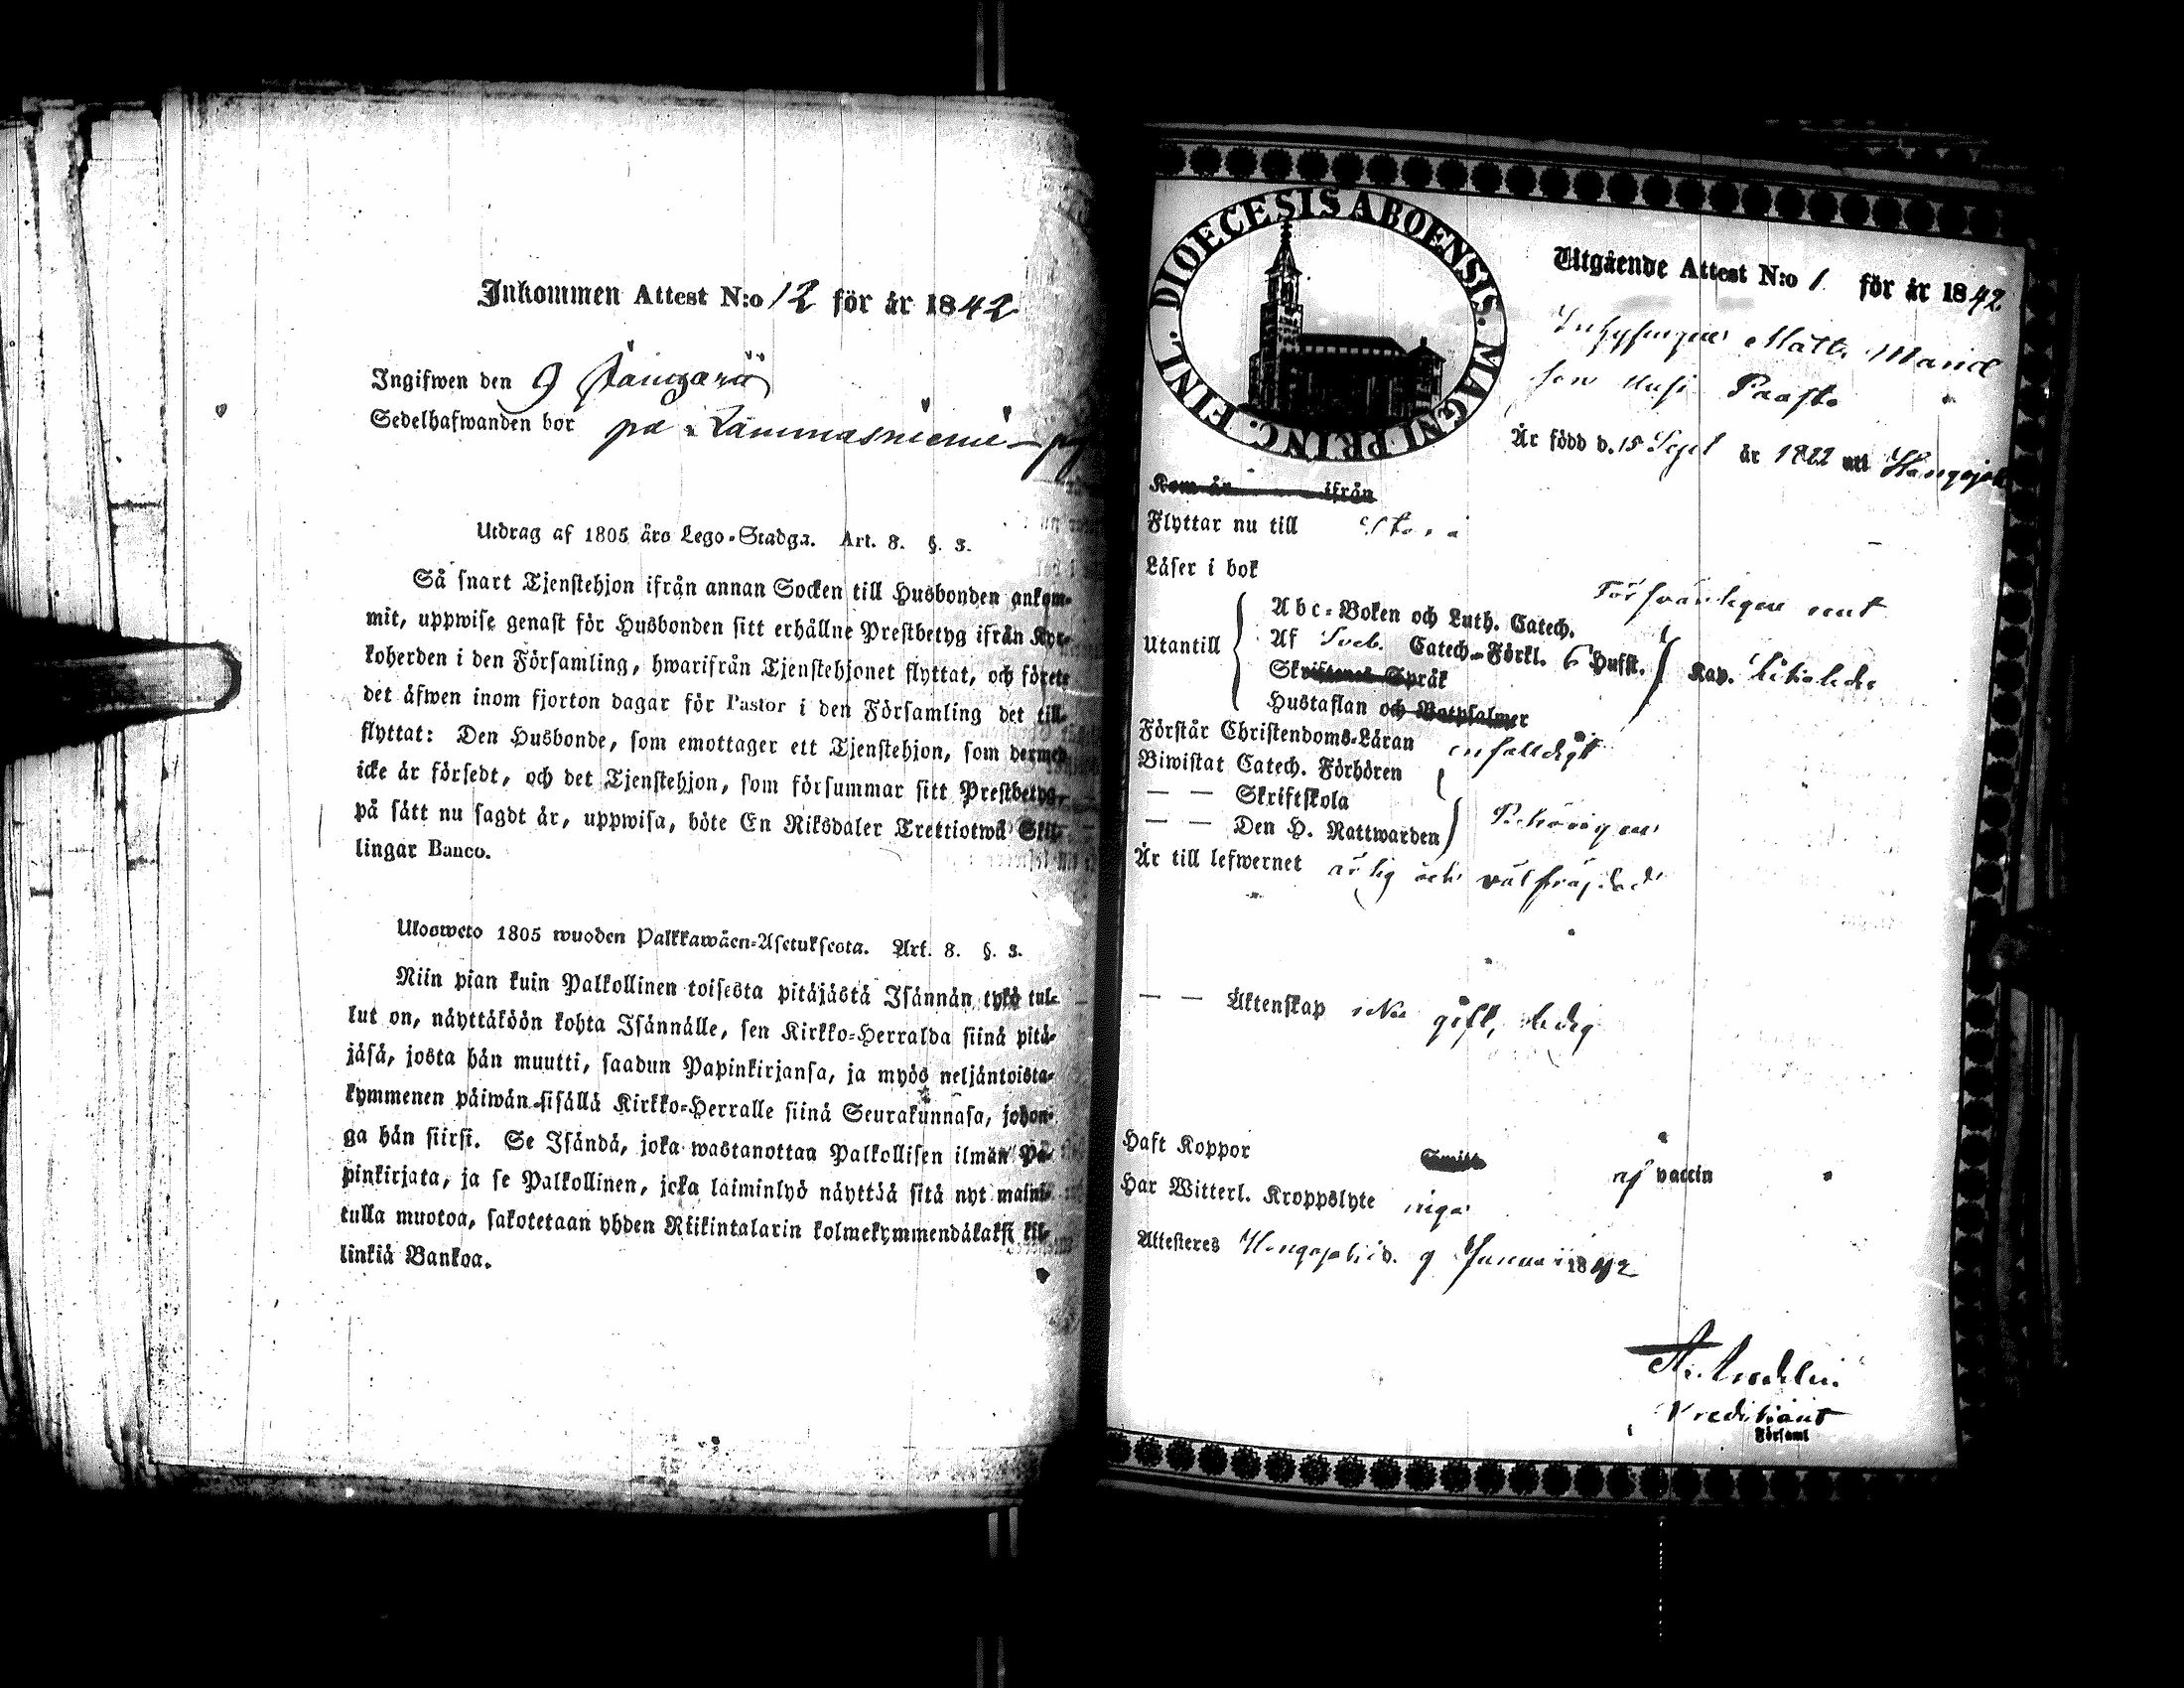 Inkommen Attest N:o 12 för år 1842
Ingifwen den 9
Sedelhafwanden bor på
Utdrag af 1805 års Lego-Stadga. Art. 8. §. 3.
Så snart Tjenstehjon ifrån annan Socken till Husbonden ankom-
mit, uppwise genast för Husbonden sitt erhållne Prestbetyg ifrån Kyr-
koherden i den Församling, hwarifrån Tjenstehjonet flyttat, och förete
det äfwen inom fjorton dagar för Pastor i den Församling det till-
flyttat: Den Husbonde, som emottager ett Tjenstehjon, som dermed
icke är försedt, och det Tjenstehjon, som försummar sitt Prestbetyg,
på sätt nu sagdt är, uppwisa, böte En Riksdaler Trettiotwå Skil-
lingar Banco.
Ulosweto 1805 wuoden Palkkawäen-Asetuksesta. Art. 8. §. 3.
Niin pian kuin Palkollinen toisesta pitäjästä Isännän tykö tul-
lut on, näyttäköön kohta Isännälle, sen Kirkko-Herralda siinä pitä-
jäsä, josta hän muutti, saadun Papinkirjansa, ja myös neljäntoista-
kymmenen päiwän sisällä Kirkko-Herralle siinä Seurakunnasa, johon-
ga hän siirsi. Se Isändä, joka wastanottaa Palkollisen ilman Pa-
pinkirjata, ja se Palkollinen, joka laiminlyö näyttää sitä nyt maini-
tulla muotoa, sakotetaan yhden Riikintalarin kolmekymmendäkaksi kil-
linkiä Bankoa.
DIOECESIS ABOENSIS. MAGNI PRINC. FINL.
Utgående Attest N:o 1 för år 1842
Matts
Är född d. 15 Sept år 1822 uti
Kom år ifrån
Flyttar nu till
Läser i bok
Försvarligen
Utantill
Abc-Boken och Luth. Catech.
Af Sveb. Catech-Förkl. 6 Hufst. Kap.
Skriftenes Språk
Hustaflan och Botpsalmer
Förstår Christendoms-Läran enfaldigt
Biwistat Catech. Förhören
— — Skriftskola
— — Den H. Nattwarden Behörigen
Är till lefwernet ärlig och välfräjdad
— — Äktenskap icke gift, ledig
Haft Koppor af vaccin
Har Witterl. Kroppslyte inga
Attesteres d. 9 Januarii 1842
Församl